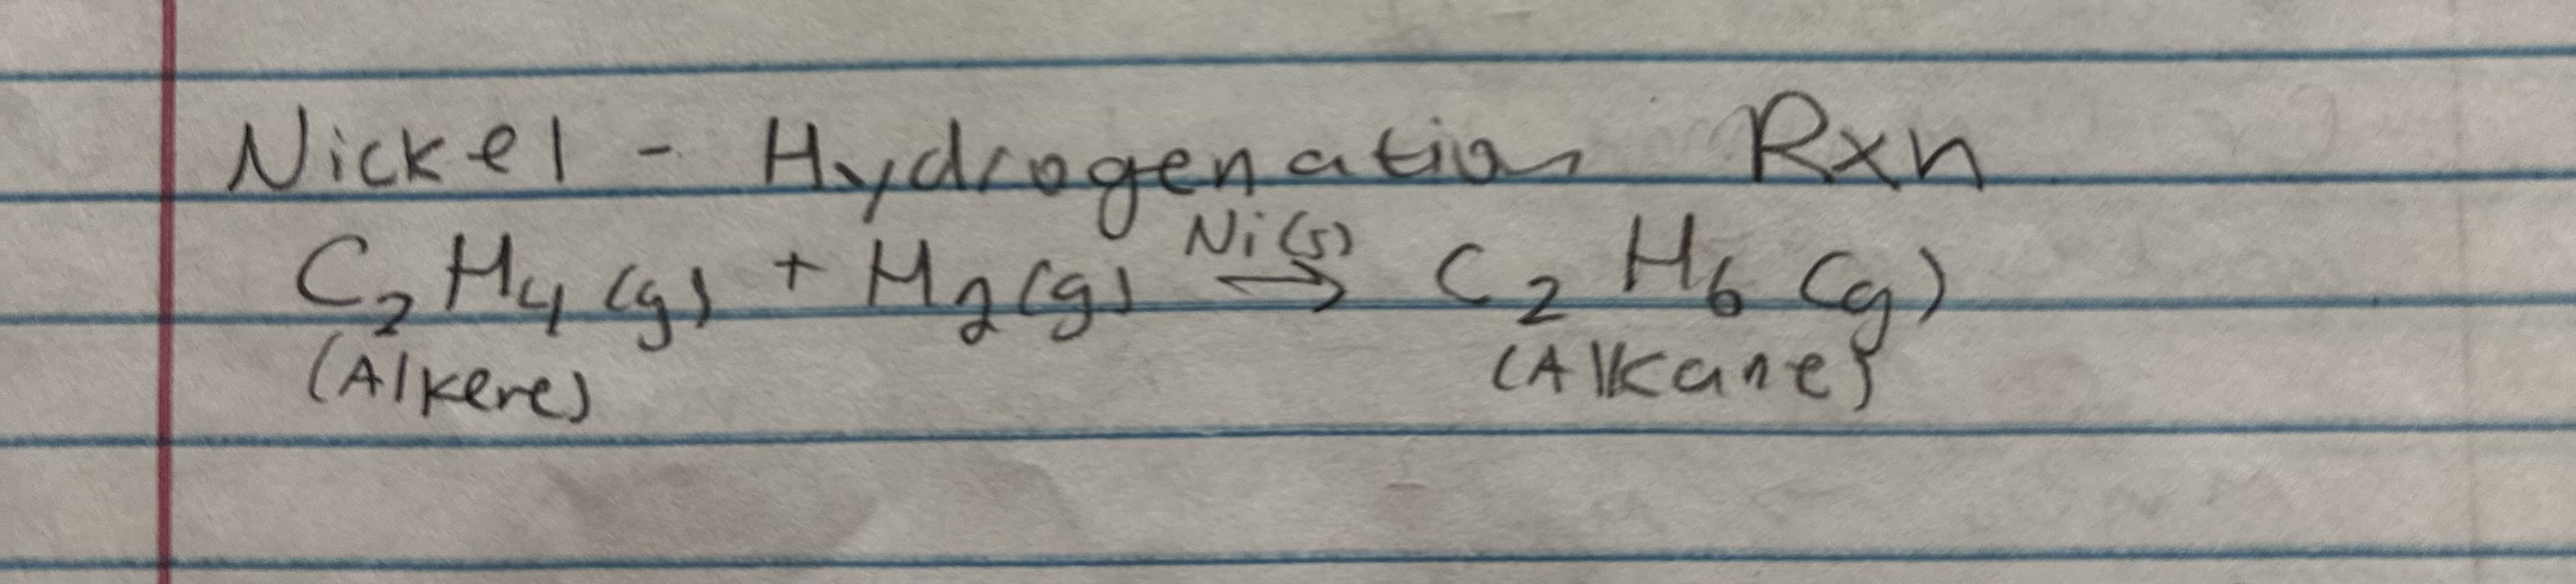 Nickel - Hydrogenation Rxn
C₂H₄(g) + H₂(g) Ni(s)→ C₂H₆(g)
(Alkene) (Alkane)